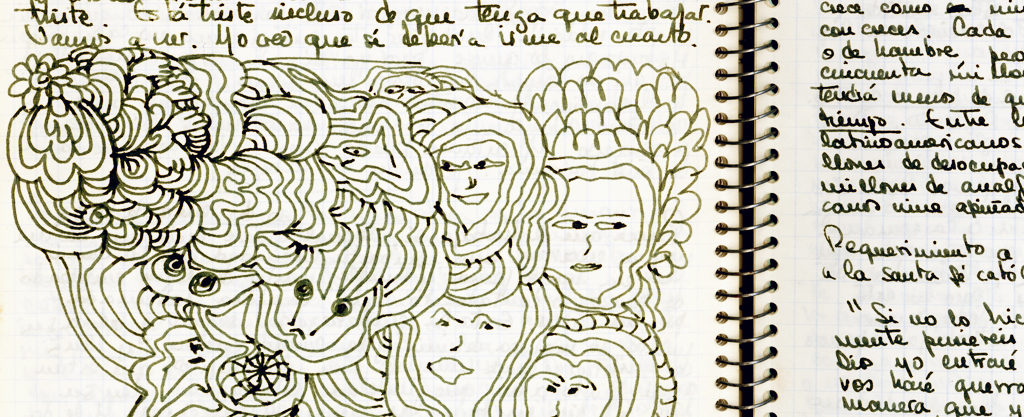 triste. Está triste incluso de que tenga que trabajar.
Vamos a ver. Yo creo que si debería irme al cuarto.
crece como
con creces. Cada
o de hambre
cincuenta mi
tendrá menos de
tiempo. Entre
latinoamericanos
llones de desocupa
millones de analf
Requerimiento a
a la santa fé catól
" Si no lo hic
mente
Dios yo entraré
vos haré guerra
manera que